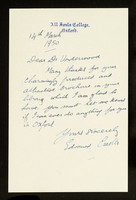 All Souls College,
Oxford.
14th March
1950
Dear Dr Underwood
Many thanks for your
charmingly produced and
attractive brochure on your
library which I am glad to
have. You must let me know
if I can ever do anything for you
in Oxford.
Yours sincerely
Edmund